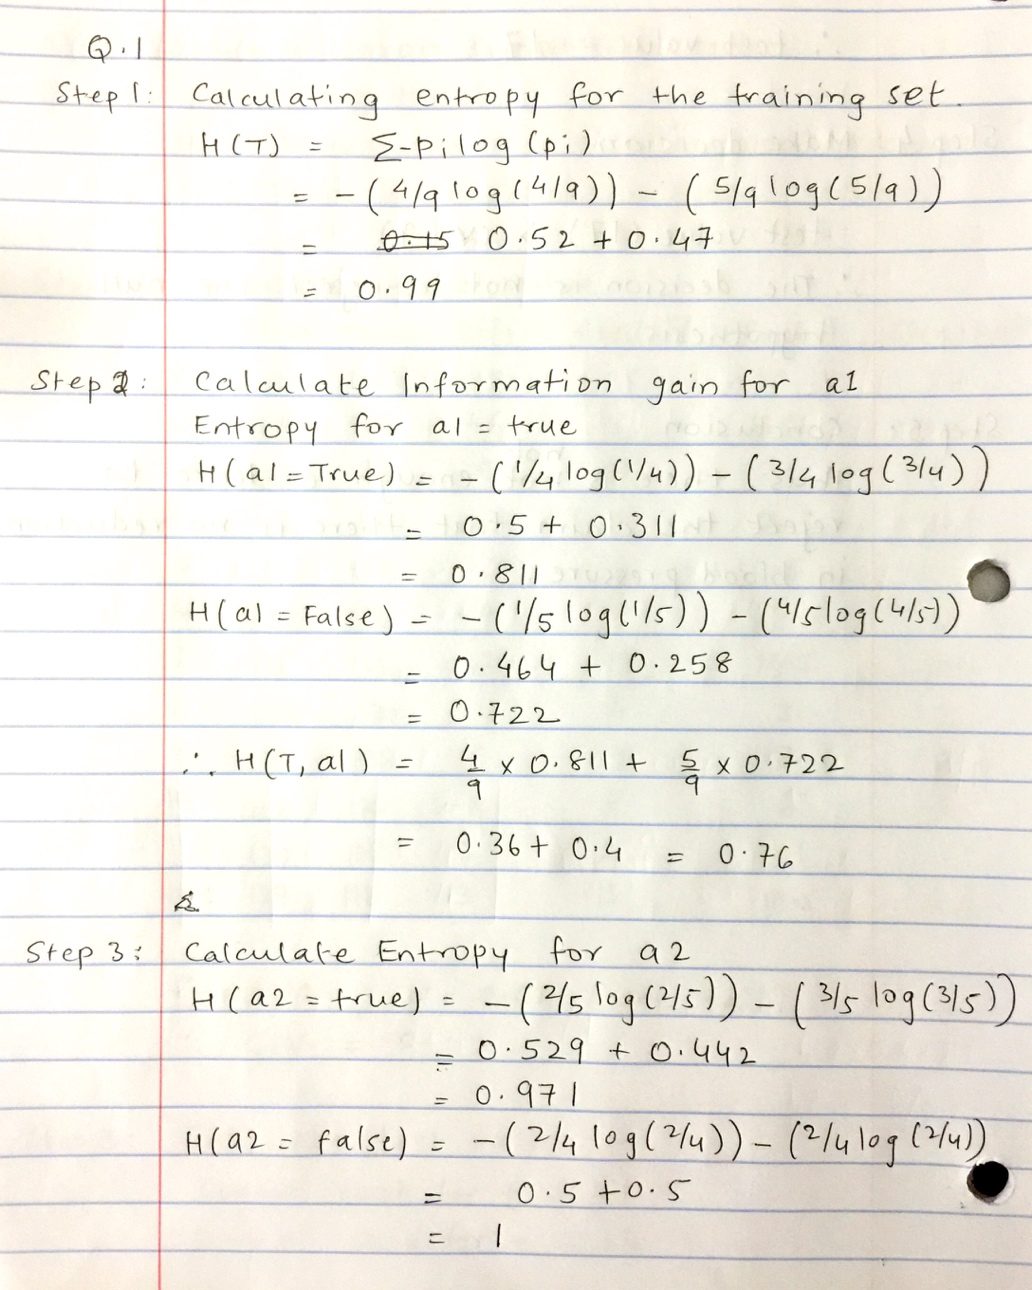 Q.1
Step 1: Calculating entropy for the training set.
H(T) = Σ-pilog(pi)
= -(4/9 log(4/9)) - (5/9 log(5/9))
= 0.15 0.52 + 0.47
= 0.99
Step 2: Calculate Information gain for a1
Entropy for a1 = true
H(a1=True) = -(1/4 log(1/4)) - (3/4 log(3/4))
= 0.5 + 0.311
= 0.811
H(a1 = False) = -(1/5 log(1/5)) - (4/5 log(4/5))
= 0.464 + 0.258
= 0.722
∴ H(T, a1) = 4/9 x 0.811 + 5/9 x 0.722
= 0.36 + 0.4 = 0.76
Step 3: Calculate Entropy for a2
H(a2 = true) = -(2/5 log(2/5)) - (3/5 log(3/5))
= 0.529 + 0.442
= 0.971
H(a2 = false) = -(2/4 log(2/4)) - (2/4 log(2/4))
= 0.5 + 0.5
= 1